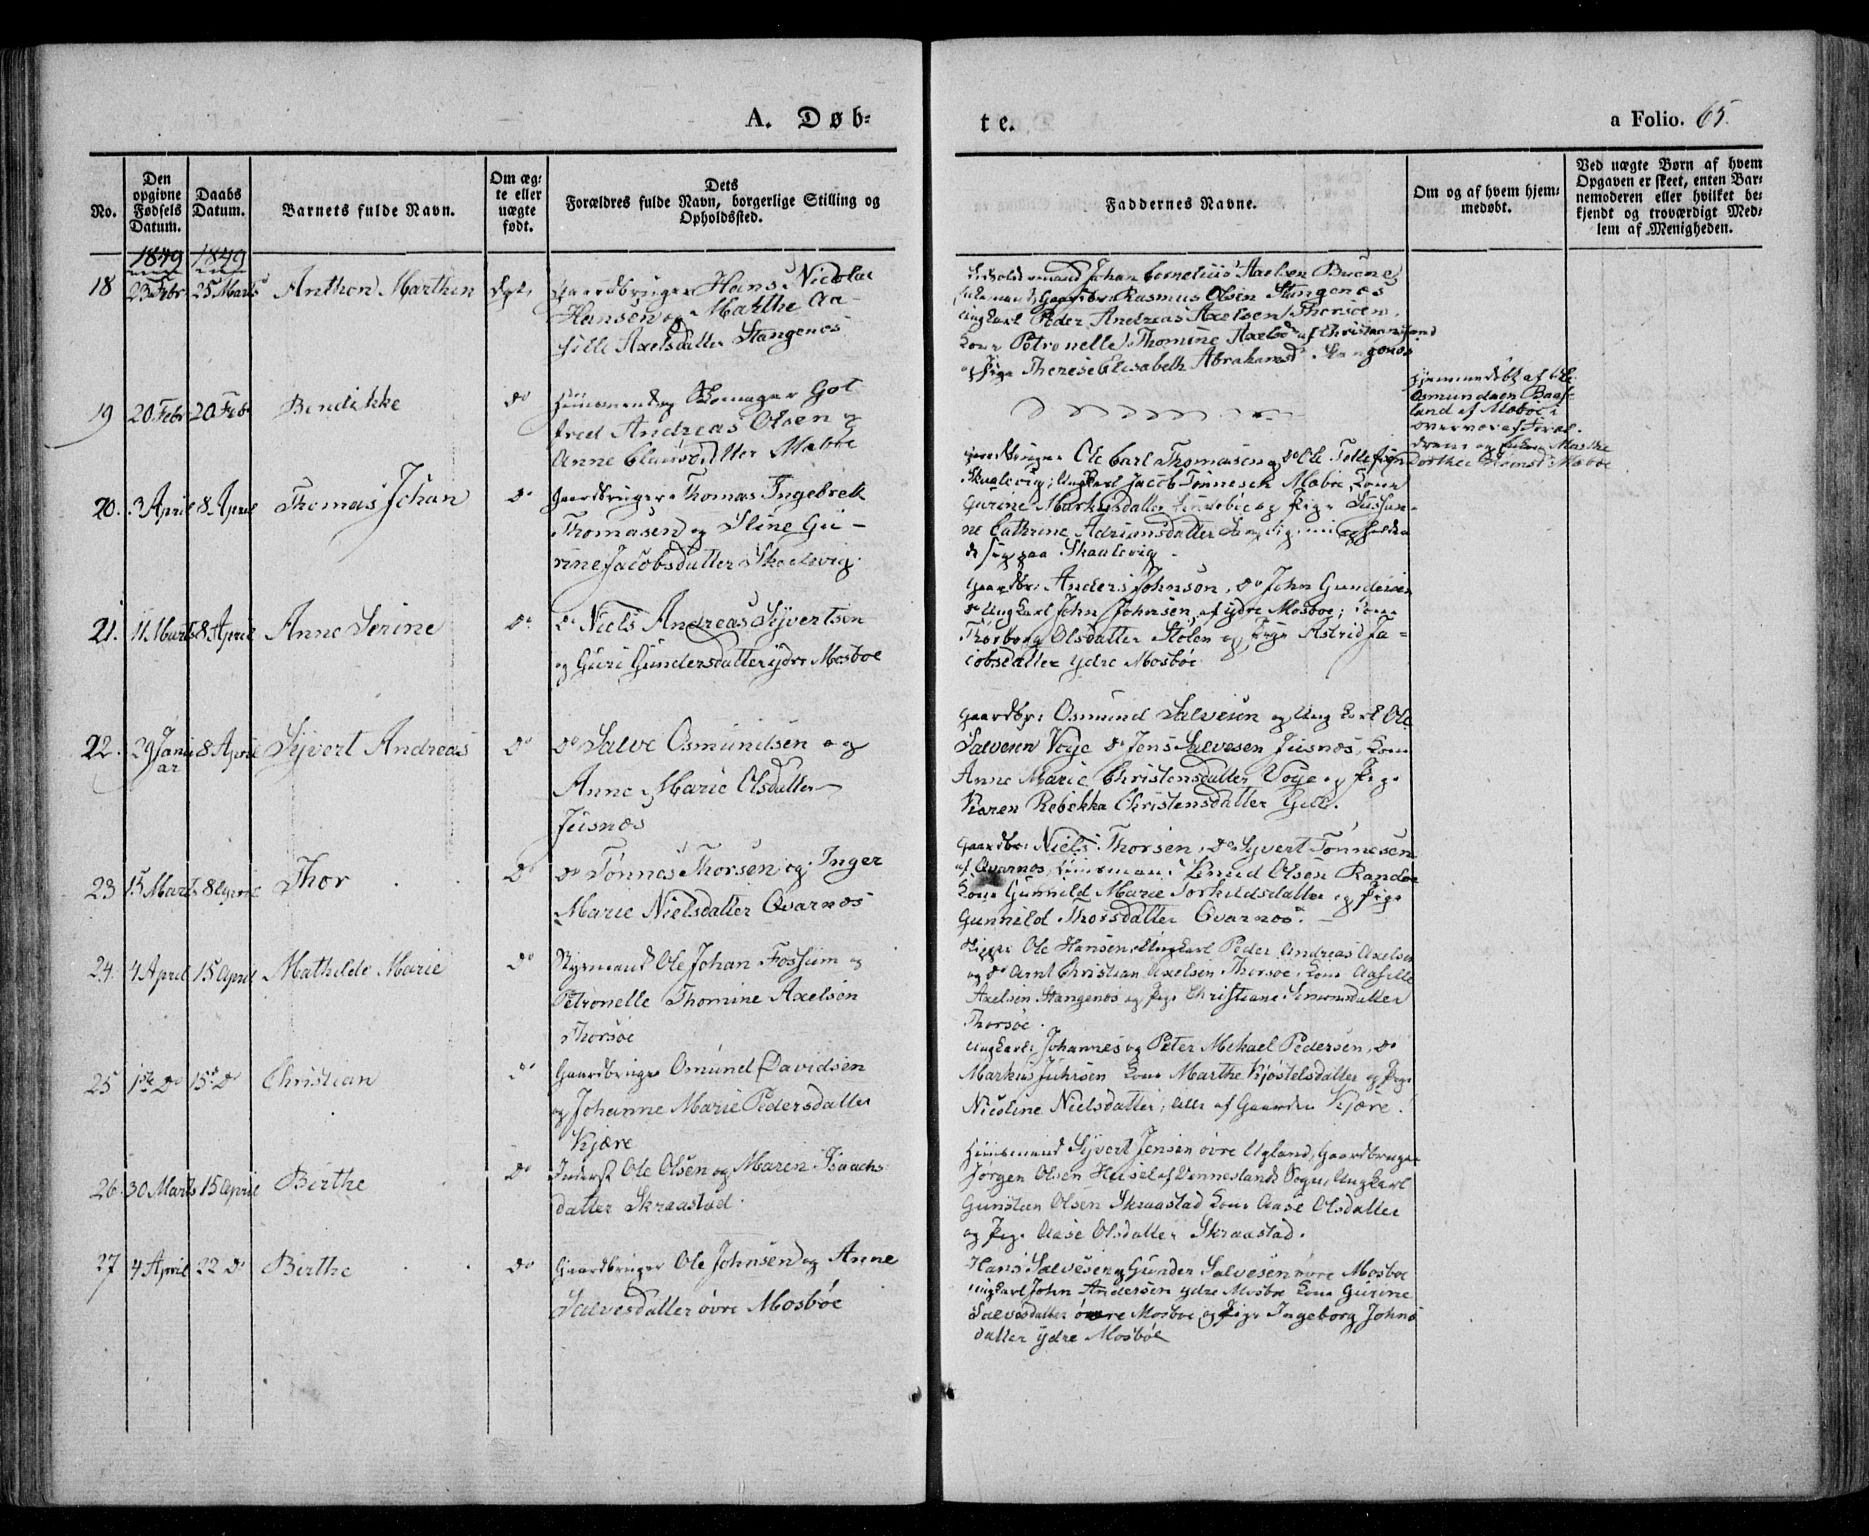 A. Døb-
te.
a Folio. 65.
No.
Den opgivne Fødsels Datum.
Daabs Datum.
Barnets fulde Navn.
Om æg- te eller uægte født.
Dets Forældres fulde Navn, borgerlige Stilling og Opholdssted.
Faddernes Navne.
Om og af hvem hjem- medøbt.
Ved uægte Børn af hvem Opgaven er skeet, enten Bar- nemoderen eller hvilket be- kjendt og troværdigt Med- lem af Menigheden.
1849 1849
18 23 Febr 25 Marts Anthon Marthin Ægte Gaardbruger Hans Nicolai
Hansen og Marthe Aa-
sille Axelsdatter Stangenes
Johan Cornelius Axelsen
Gaardbr: Rasmus Olsen Stangenes
Ungkarl Peder Andreas Axelsen Thorsøen,
Kone Petronelle Thomine Axelsd af Christiansand
og Pige Therese Elisabeth Abrahamsd. Stangenes
19 20 Febr 20 Febr Bendikke do Huusmand og Skomager Got
fred Andreas Olsen og
Anne Clausdatter Mæbøe
Hjemmedøbt af
Osmundsen
land af Mæbøe i
overvær af Foræl-
drene og Marthe
Dorthea Mæbøe
20. 3 April 8 April Thomas Johan do Gaardbruger Thomas Ingebrek
Thomasen og Sline Gu-
rine Jacobsdatter Skaalevig.
Gaardbruger Ole Carl Thomasen og do Ole Tellefsen
Skaalevig; Ungkarl Jacob Tønnesen Mæbø, Kone
Gurine Markusdatter og Pige Sussan-
ne Cathrine Adriansdatter
de sig paa Skaalevig.
21. 11. Marts 8 April Anne Serine do do Niels Andreas Syvertsen
og Guri Gundersdatter ydre Mosbøe
Gaardbr: Anders Johnson, do John Gundersen
do Ungkarl John Johnsen, af ydre Mosbøe; Kone
Thorborg Olsdatter Stølen og Pige Astrid Ja-
cobsdatter ydre Mosbøe
22. 29 Janu 8 April Syvert Andreas do do Salve Osmundsen og
ar
Anne Marie Olsdatter
Jusnæs
Gaardbr: Osmund Salvesen og Ungkarl Ole
Salvesen Voje do Jens Salvesen Jusnæs, Kone
Anne Marie Christensdatter Voje og Pige
Karen Rebekka Christensdatter Gill.
23 15 Marts 8 April Thor do do Tønnes Thorsen og Inger
Marie Nielsdatter Qvarnes
Gaardbr: Niels Thorsen, do Syvert Tønnesen
af Qvarnes, Huusmand Knud Olsen Randøe
Kone Gunnild Marie Torkildsdatter og Pige
Gunnild Thorsdatter Qvarnes.
24. 4 April 15 April Mathilde Marie do Styrmand Ole Johan Fossum og
Petronelle Thomine Axelsen
Thorsøe
Skipper Ole Hansen, Ungkarl Peder Andreas Axelsen
og do Arnt Christian Axelsen Thorsøe, Kone Aasille
Axelsen Stangenes og Pige Christiane Simonsdatter
Thorsøe.
25 1ste do 15de do Christian do Gaardbruger Osmund Davidsen
og Johanne Marie Pedersdatter
Kjære
Ungkarl: Johannes og Peter Mekael Pedersen, do
Markus Juhrsen Kone Marthe Kjøstelsdatter og Pige
Nicoline Nielsdatter; Alle af Gaarden Kjære.
26. 30 Marts 15 April Birthe do Inderst Ole Olsen og Maren Isaachs-
datter Skraastad.
Huusmand Syvert Jensen øvre Ugland, Gaardbruger
Jørgen Olsen Husel af Vennesland Sogn, Ungkarl
Gunsten Olsen Skraastad Kone Aase Olsdatter
og Pige Aase Olsdatter Skraastad.
27 4 April 22 do Birthe do Gaardbruger Ole Johnsen og Anne
Salvesdatter øvre Mosbøe
Hans Salvesen og Gunder Salvesen øvre Mosbøe
Ungkarl John Andersen ydre Mosbøe Kone Gurine
Salvesdatter øvre Mosbøe og Pige Ingeborg Johns
datter ydre Mosbøe